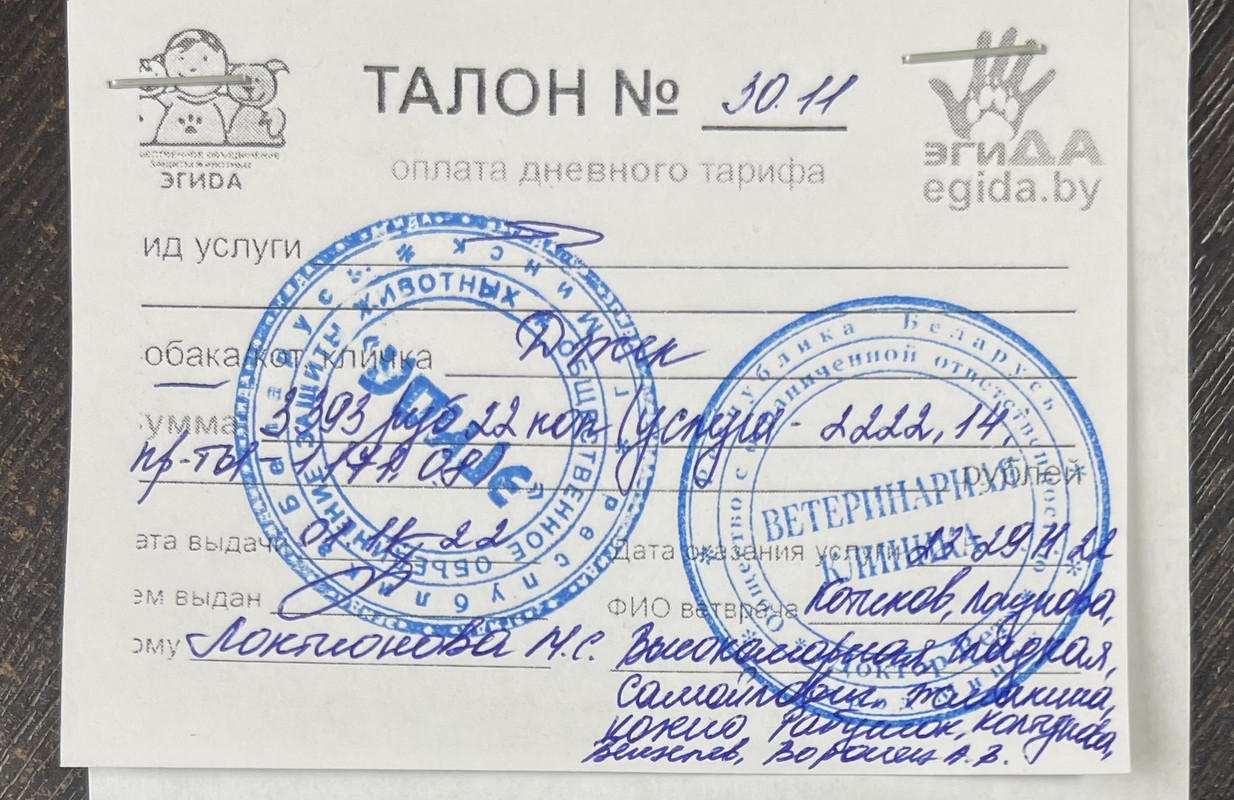 ТАЛОН № 30.11
ЗАЩИТЫ ЖИВОТНЫХ
ЭГИДА
оплата дневного тарифа
ЭГИДА
egida.by
ид услуги
обака кот, кличка Джек
умма 3 393 руб 22 коп (услуга - 2222,14,
пр-ты - 1171.08)
рублей
ата выдачи 01.11.22
Дата оказания услуги 22-29.11.22
ем выдан
ФИО ветврача Котиков,
ому Локтионова М.С.
Высокоморная, Гладкая,
Самойлович,
Кожно, Колтунова,
Воронец А.В.
Республика Беларусь * г. Минск *
ОБЩЕСТВЕННОЕ ОБЪЕДИНЕНИЕ ЗАЩИТЫ ЖИВОТНЫХ
"ЭГИДА"
Республика Беларусь
Общество с ограниченной ответственностью
ВЕТЕРИНАРНАЯ
КЛИНИКА